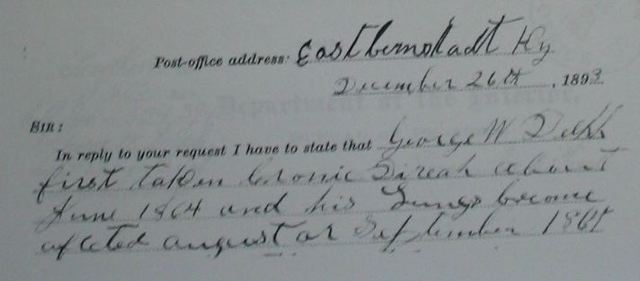 Post-office address: Eastbernstadt Ky
December 26th, 1893
SIR:
In reply to your request I have to state that George W Delk
first taken Cronic Direah about
June 1864 and his Lungs become
afected august or September 1864